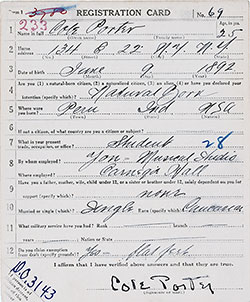 REGISTRATION CARD
No. 69
233
1 Name in full Cole Porter Age, in yrs. 25
2 Home address 134 E 22 N.Y. N.Y.
3 Date of birth June 9 1892
4 Are you (1) a natural-born citizen, (2) a naturalized citizen, (3) an alien, (4) or have you declared your
intention (specify which)? Natural Born
5 Where were you born? Peru Ind USA
6 If not a citizen, of what country are you a citizen or subject?
7 What is your present trade, occupation, or office? Student 28
8 By whom employed? Yon- Musical Studio
Where employed? Carnegie Hall
9 Have you a father, mother, wife, child under 12, or a sister or brother under 12, solely dependent on you for
support (specify which)? none
10 Married or single (which)? Single Race (specify which)? Caucasian
11 What military service have you had? Rank branch
years Nation or State
12 Do you claim exemption from draft (specify grounds)? Yes- flat feet
I affirm that I have verified above answers and that they are true.
Cole Porter